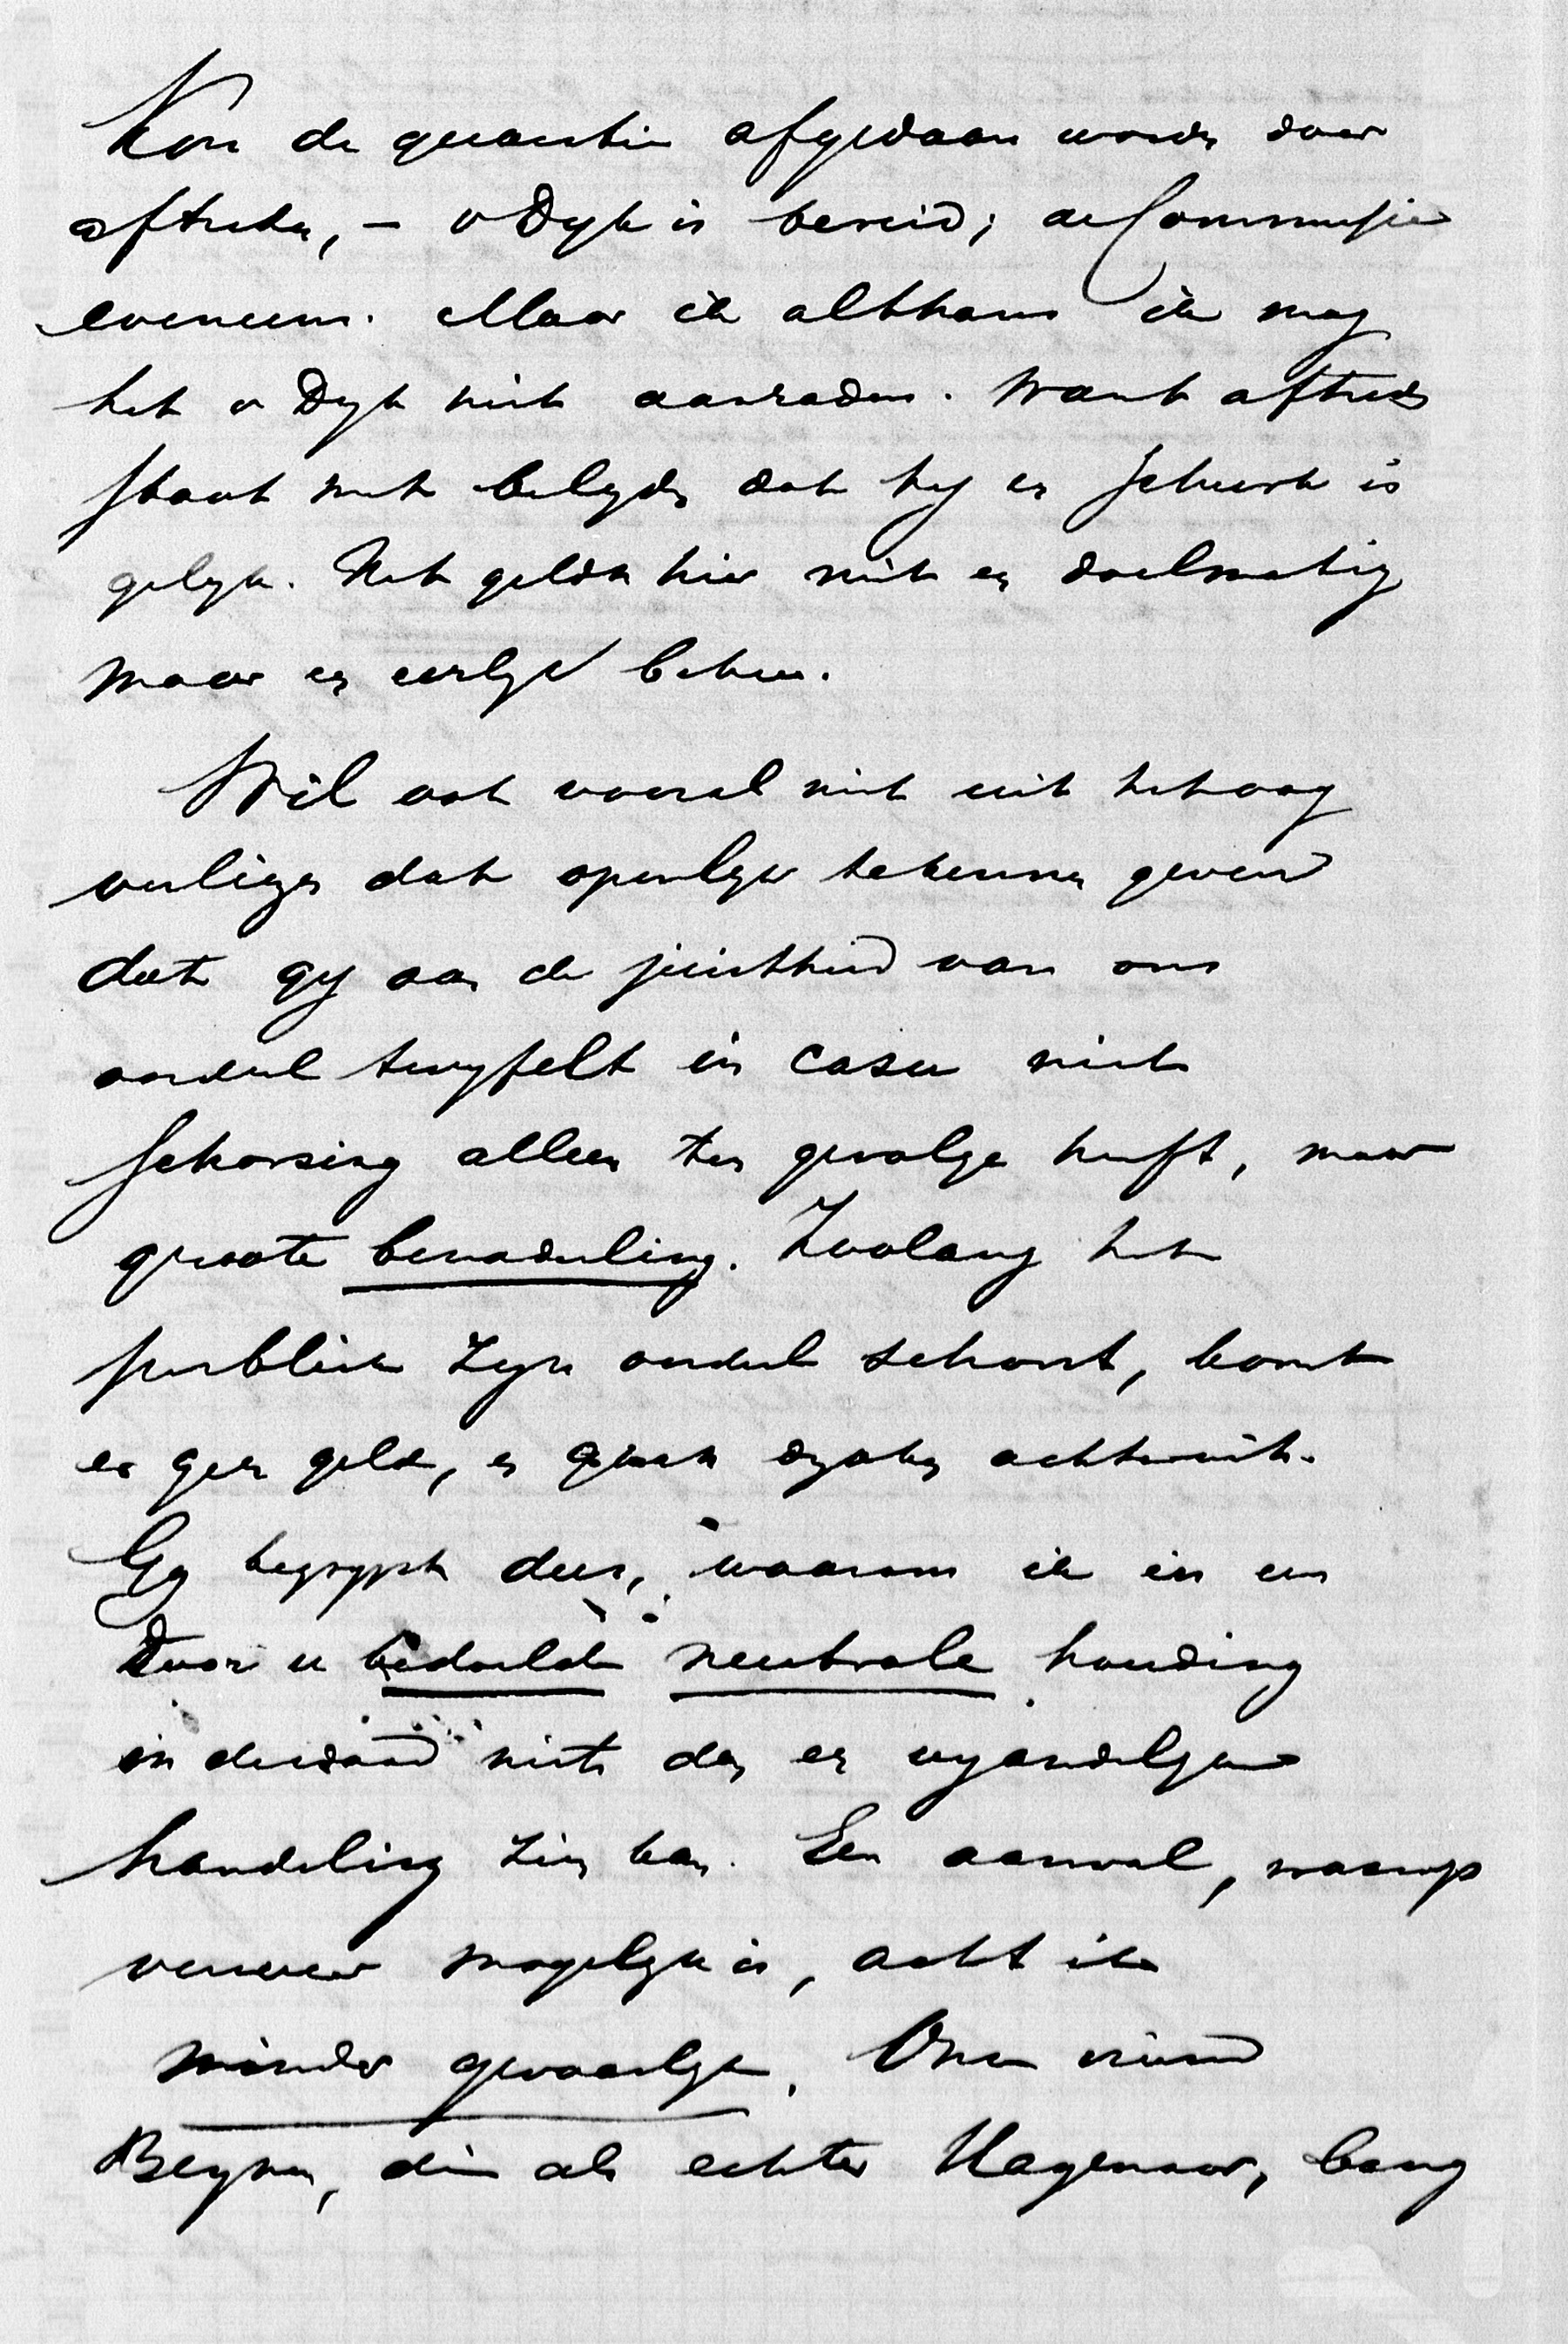 Kon de quaestie afgedaan worden door
aftreden, – v Dyk is bereid; de Commissie
eveneens. Maar ik althans ik mag
het v Dyk niet aanraden. Want aftreden
staat met belyden dat hy er schuld is
gelyk. Het geldt hier niet een doelmatig
maar een eerlyk beheer.
Wil ook vooral niet uit het oog
verliezen dat openlyk te kennen geven
dat gy aan de juistheid van ons
oordeel twyfelt in casu niet
schorsing alleen ten gevolge heeft, maar
groote benadeeling. Zoolang het
publiek zyn oordeel schorst, komt
er geen geld, en gaan zaken achteruit.
Gy begrypt dus, waarom ik in een
door u bedoelde neutrale houding
inderdaad niets dan een vyandelyke
handeling zien kan. Een aanval, waarop
verweer mogelyk is, acht ik
minder gevaarlyk. Onze vriend
Beynen, die als echter Hagenaar, bang